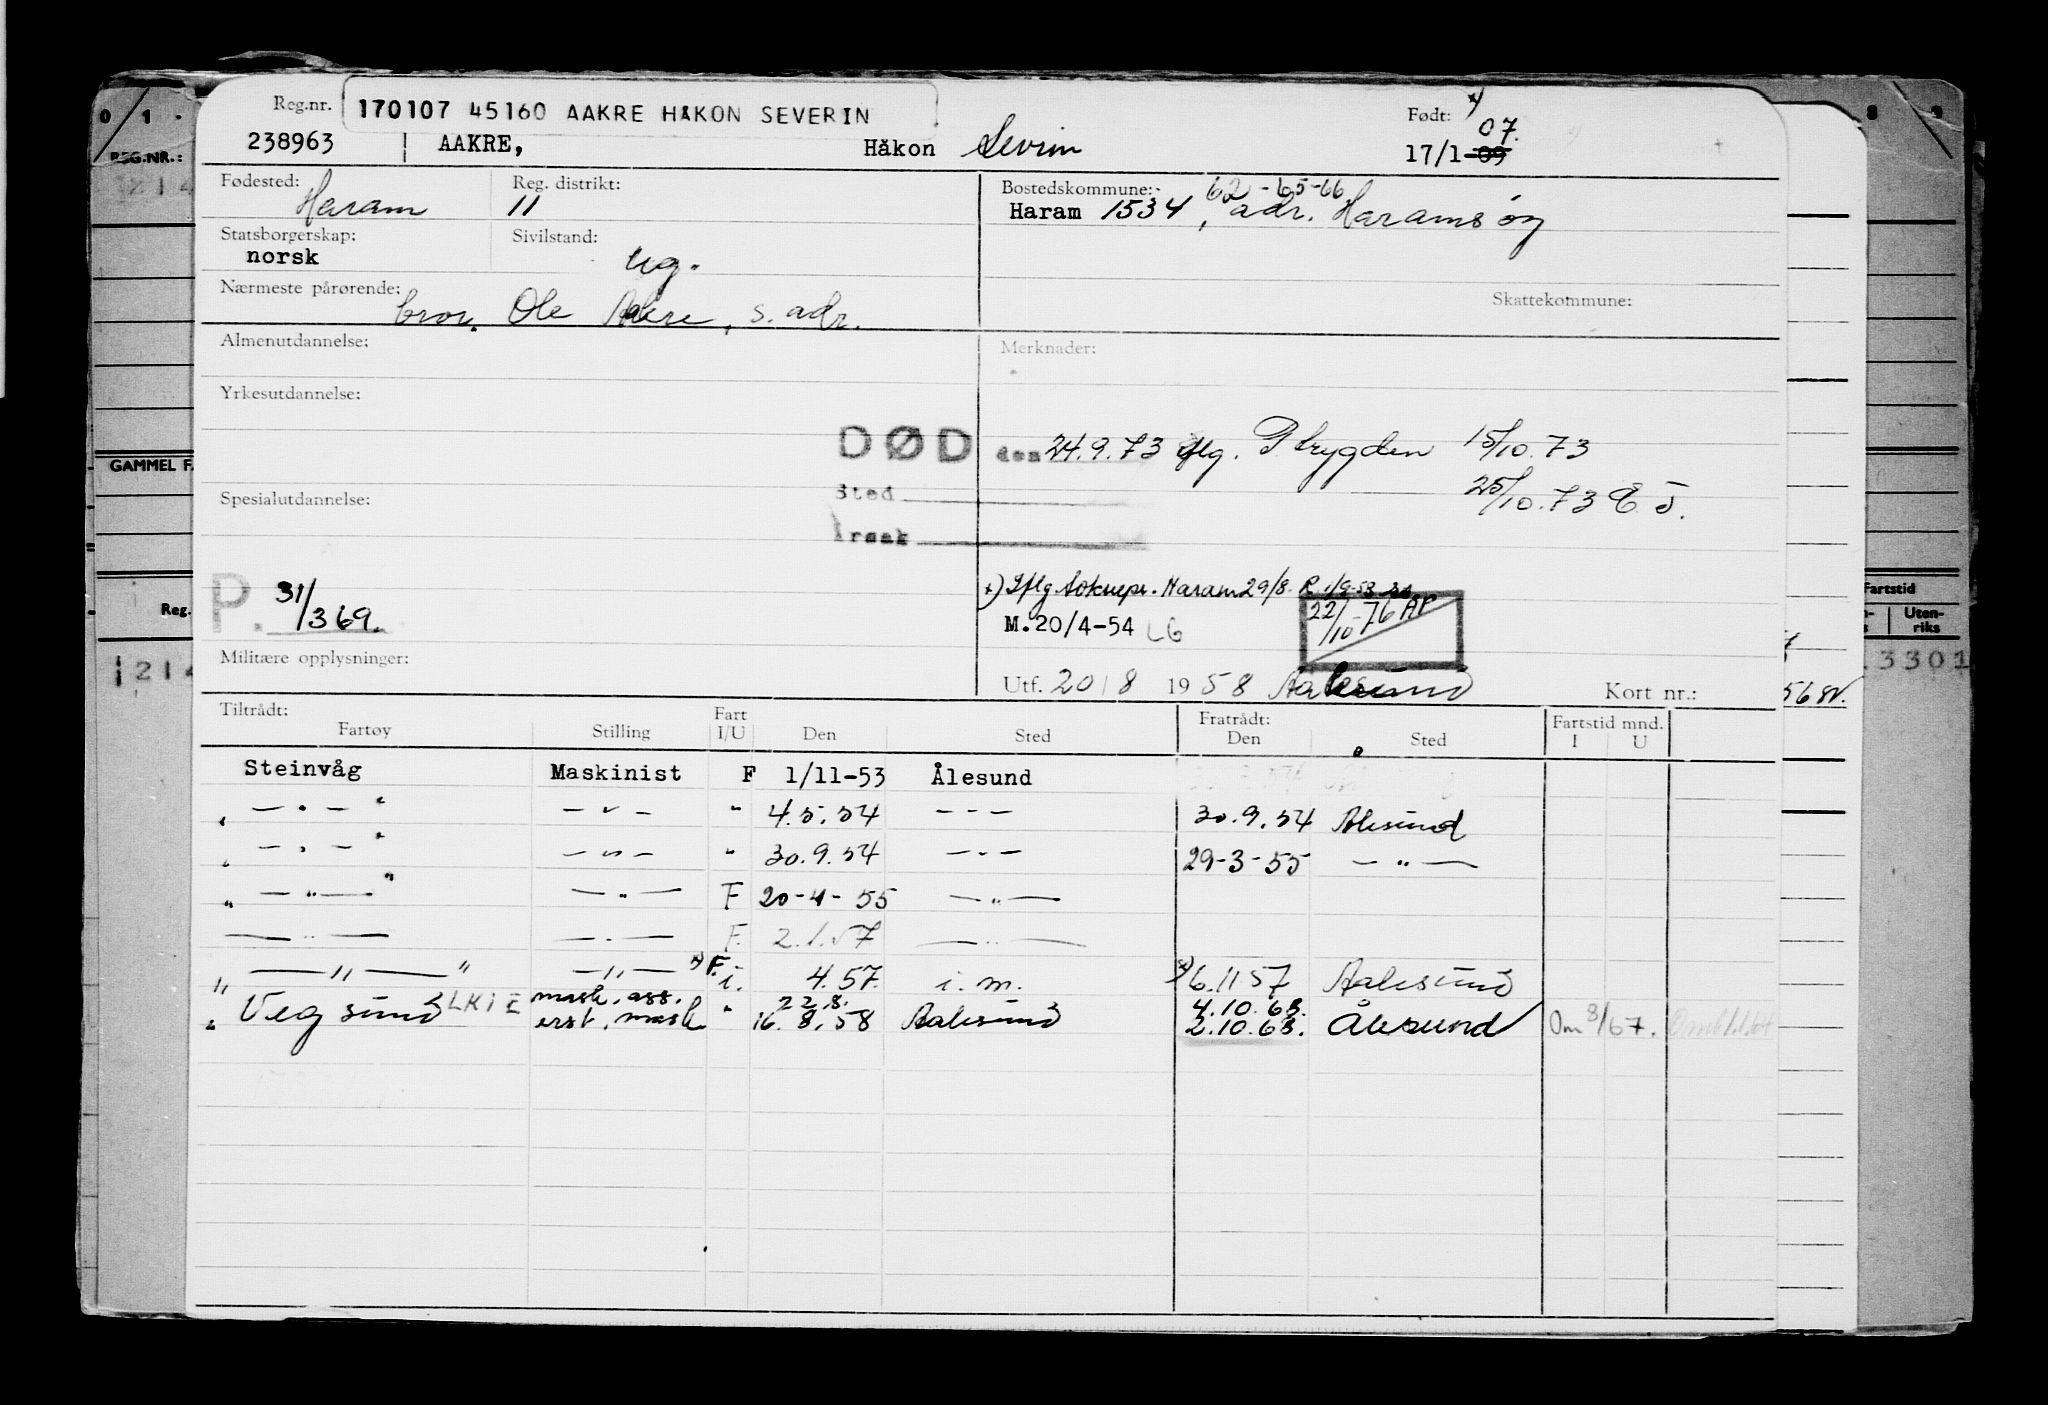 Reg.nr. 170107 45160 AAKRE HÅKON SEVERIN Født: x)
238963 AAKRE, Håkon Severin 17/1-09 07.
Fødested: Haram Reg. distrikt: 11 Bostedskommune: 62-65-66
Haram 1534, adr. Haramsøy
Statsborgerskap: norsk Sivilstand: ug.
Nærmeste pårørende: bror. Ole Aakre, s. adr. Skattekommune:
Almenutdannelse: Merknader:
Yrkesutdannelse:
DØD den 24.9.73 iflg. P.trygden 15/10.73
Sted 25/10.73 E.J.
Spesialutdannelse:
Årsak
P. 31/3 69. x) Iflg. Soknepr. Haram 29/8.
M.20/4-54 LG 22/10-76 AF
Militære opplysninger:
Utf. 20/8 1958 Aalesund Kort nr.:
Tiltrådt: Fart Fratrådt: Fartstid mnd.
Fartøy Stilling I/U Den Sted Den Sted I U
Steinvåg Maskinist F 1/11-53 Ålesund
" — " — " — " — " 4.5.54 - - - 30.9.54 Alesund
" — " — " — " — " 30.9.54 — " — 29-3-55 — " —
" — " — " — " — F 20-4-55 — " —
— " — — " — F. 2.1.57 — " —
" — " — " — " — x) F. i. 4.57. i.m. x) 6.11 57 Aalesund
mask. ass. 22.8. 4.10.63.
" Vegsund LKIE erst. mask " 16.8.58 Aalesund 2.10.63. Ålesund Om 8/67.
0 1 .
REG.NR.:
214
GAMMEL F.
Reg.
1214
8 9
Fartstid
Uten-
riks
3301
56